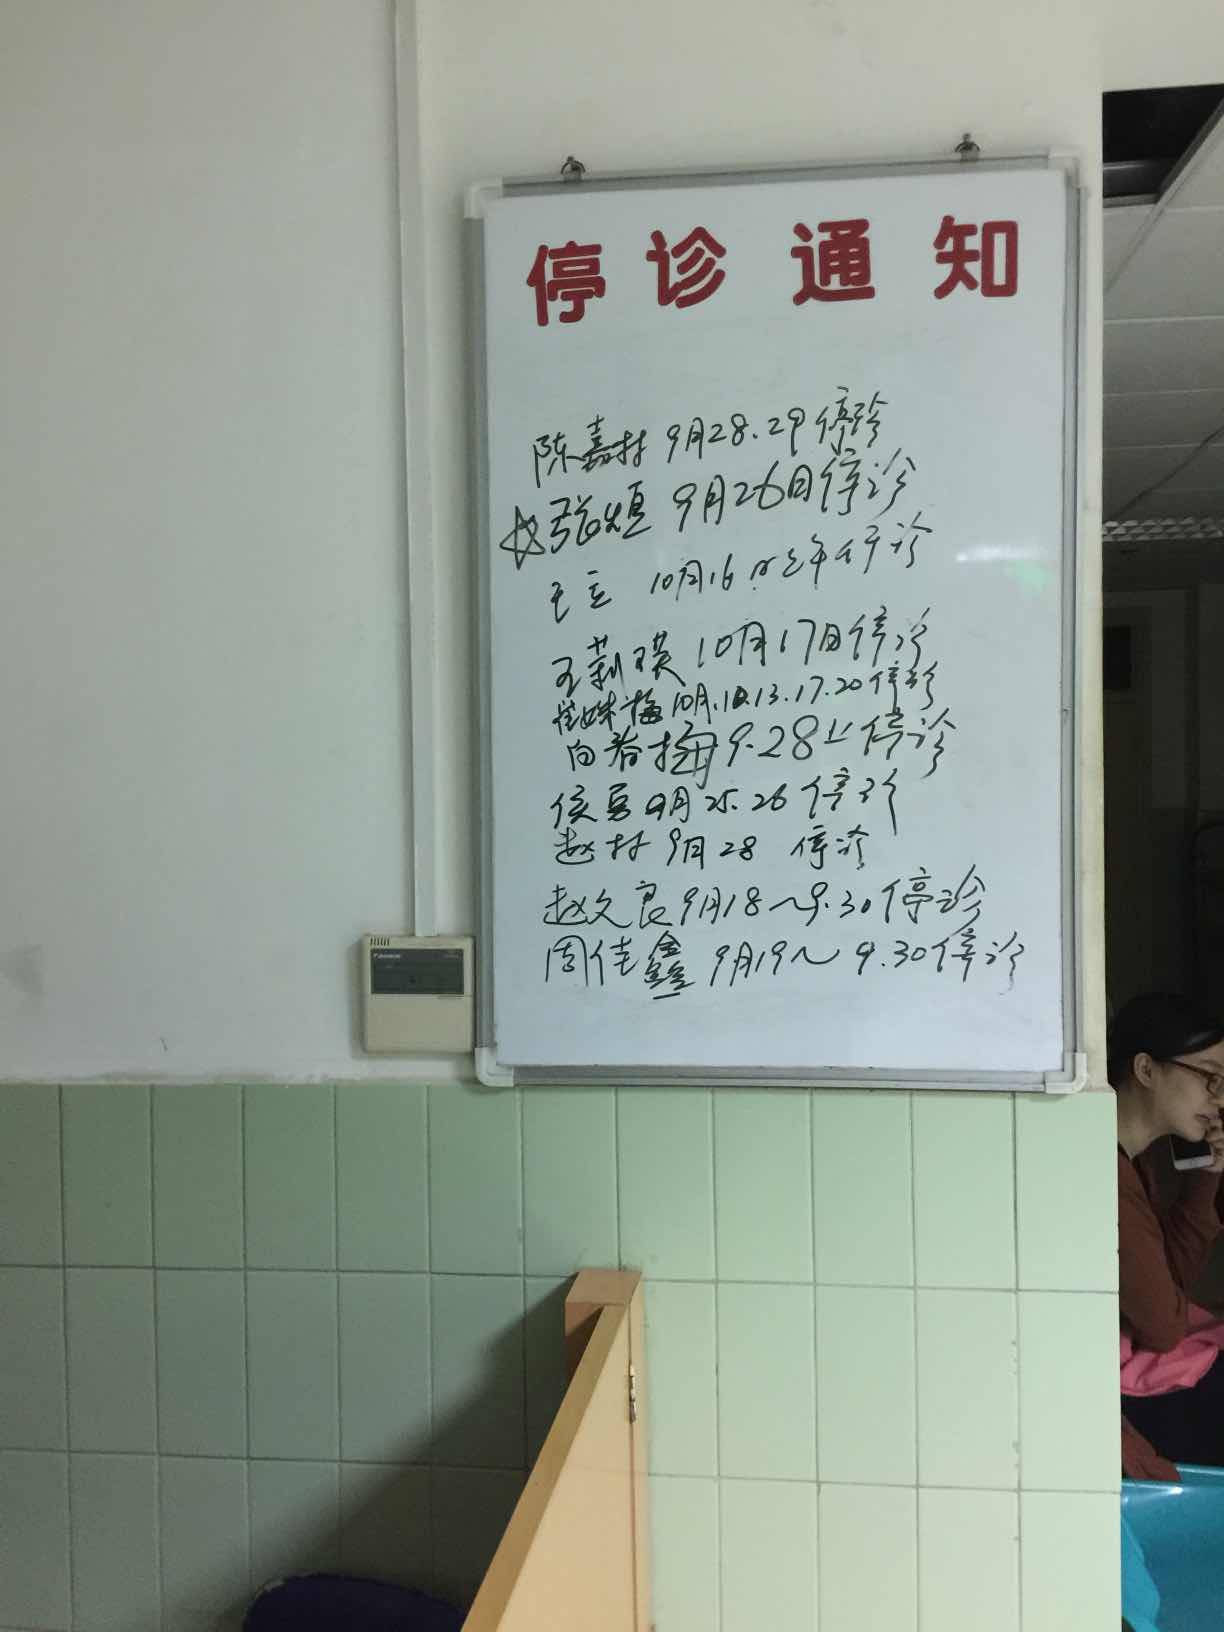 停诊通知
陈嘉村 9月28.29停诊
☆张煊 9月26日停诊
王立 10月16 停诊
王莉瑛 10月17日停诊
崔姝梅 10月.10.13.17.20停诊
向春梅 9.28上停诊
侯 9月25.26停诊
赵村 9月28 停诊
赵文良 9月18~9.30停诊
周佳鑫 9月19~9.30停诊